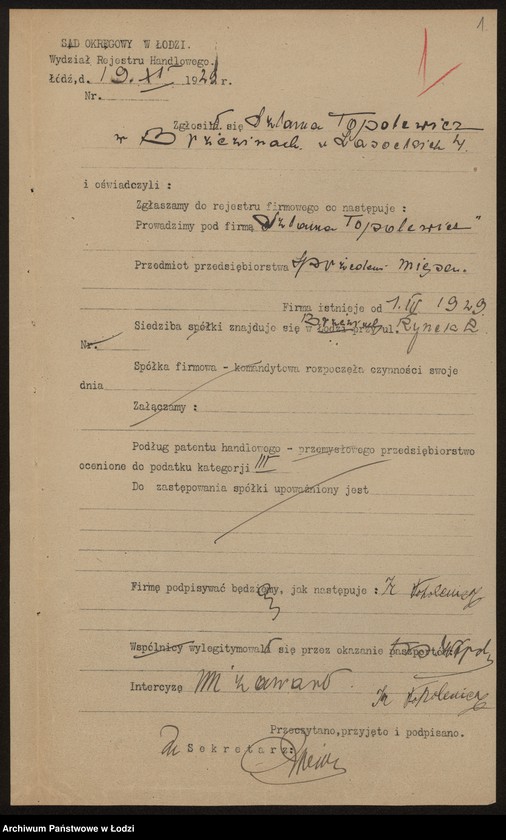 1
SĄD OKRĘGOWY W ŁODZI.
Wydział Rejestru Handlowego.
Łódź,d. 19. XI 1929 r.
Nr.
Zgłosił się Szlama Topolewicz
w Brzezinach u Lasockich 4.
i oświadczyli :
Zgłaszamy do rejestru firmowego co następuje :
Prowadzimy pod firmą "Szlama Topolewicz"
Przedmiot przedsiębiorstwa sprzedaż mięsa.
Firma istnieje od 1. 1929
Siedziba spółki znajduje się w Łodzi przy ul. Rynek 2
Nr.
Spółka firmowa - komandytowa rozpoczęła czynności swoje
dnia
Załączamy :
Podług patentu handlowego - przemysłowego przedsiębiorstwo
ocenione do podatku kategorji III
Do zastępowania spółki upoważniony jest
Firmę podpisywać będziemy, jak następuje :
Wspólnicy wylegitymowali się przez okazanie paszportów.
Intercyzę nie zawarł.
Przeczytano,przyjęto i podpisano.
Sekretarz:
Archiwum Państwowe w Łodzi